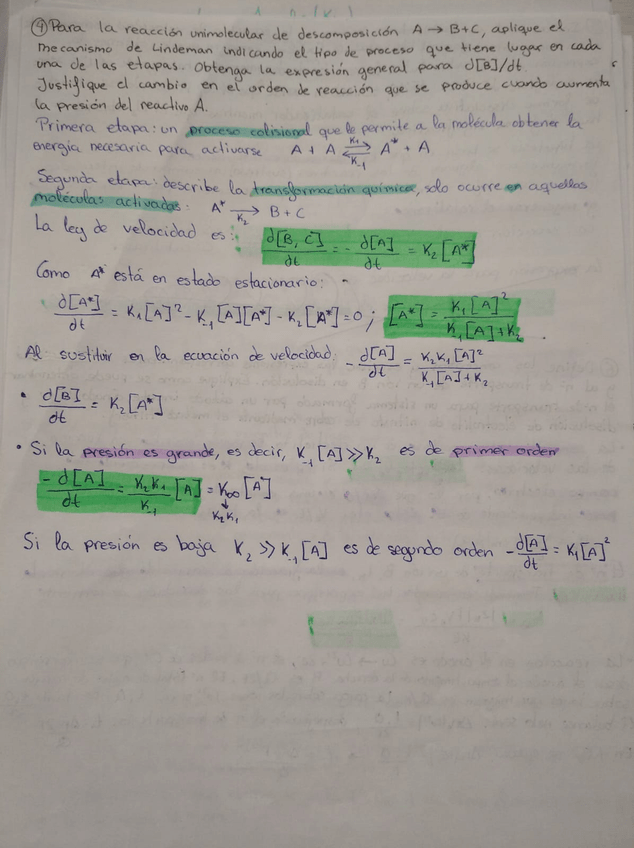 ④ Para la reacción unimolecular de descomposición A → B+C, aplique el
mecanismo de Lindeman indicando el tipo de proceso que tiene lugar en cada
una de las etapas. Obtenga la expresión general para d[B]/dt
Justifique el cambio en el orden de reacción que se produce cuando aumenta
la presión del reactivo A.
Primera etapa: un proceso colisional que le permite a la molécula obtener la
energía necesaria para activarse A + A ⇌ A* + A K₁ K₋₁
Segunda etapa: describe la transformación química, solo ocurre en aquellas
moléculas activadas: A* →K₂ B + C
La ley de velocidad es: d[B, C]/dt = - d[A]/dt = K₂ [A*]
Como A* está en estado estacionario:
d[A*]/dt = K₁[A]² - K₋₁[A][A*] - K₂[A*] = 0 ; [A*] = K₁[A]² / K₋₁[A] + K₂
Al sustituir en la ecuación de velocidad: - d[A]/dt = K₂K₁[A]² / K₋₁[A] + K₂
• d[B]/dt = K₂[A*]
• Si la presión es grande, es decir, K₋₁[A] >> K₂ es de primer orden
- d[A]/dt = K₂K₁/K₋₁ [A] = K∞[A]
↓
K₂K₁
Si la presión es baja K₂ >> K₋₁[A] es de segundo orden - d[A]/dt = K₁[A]²